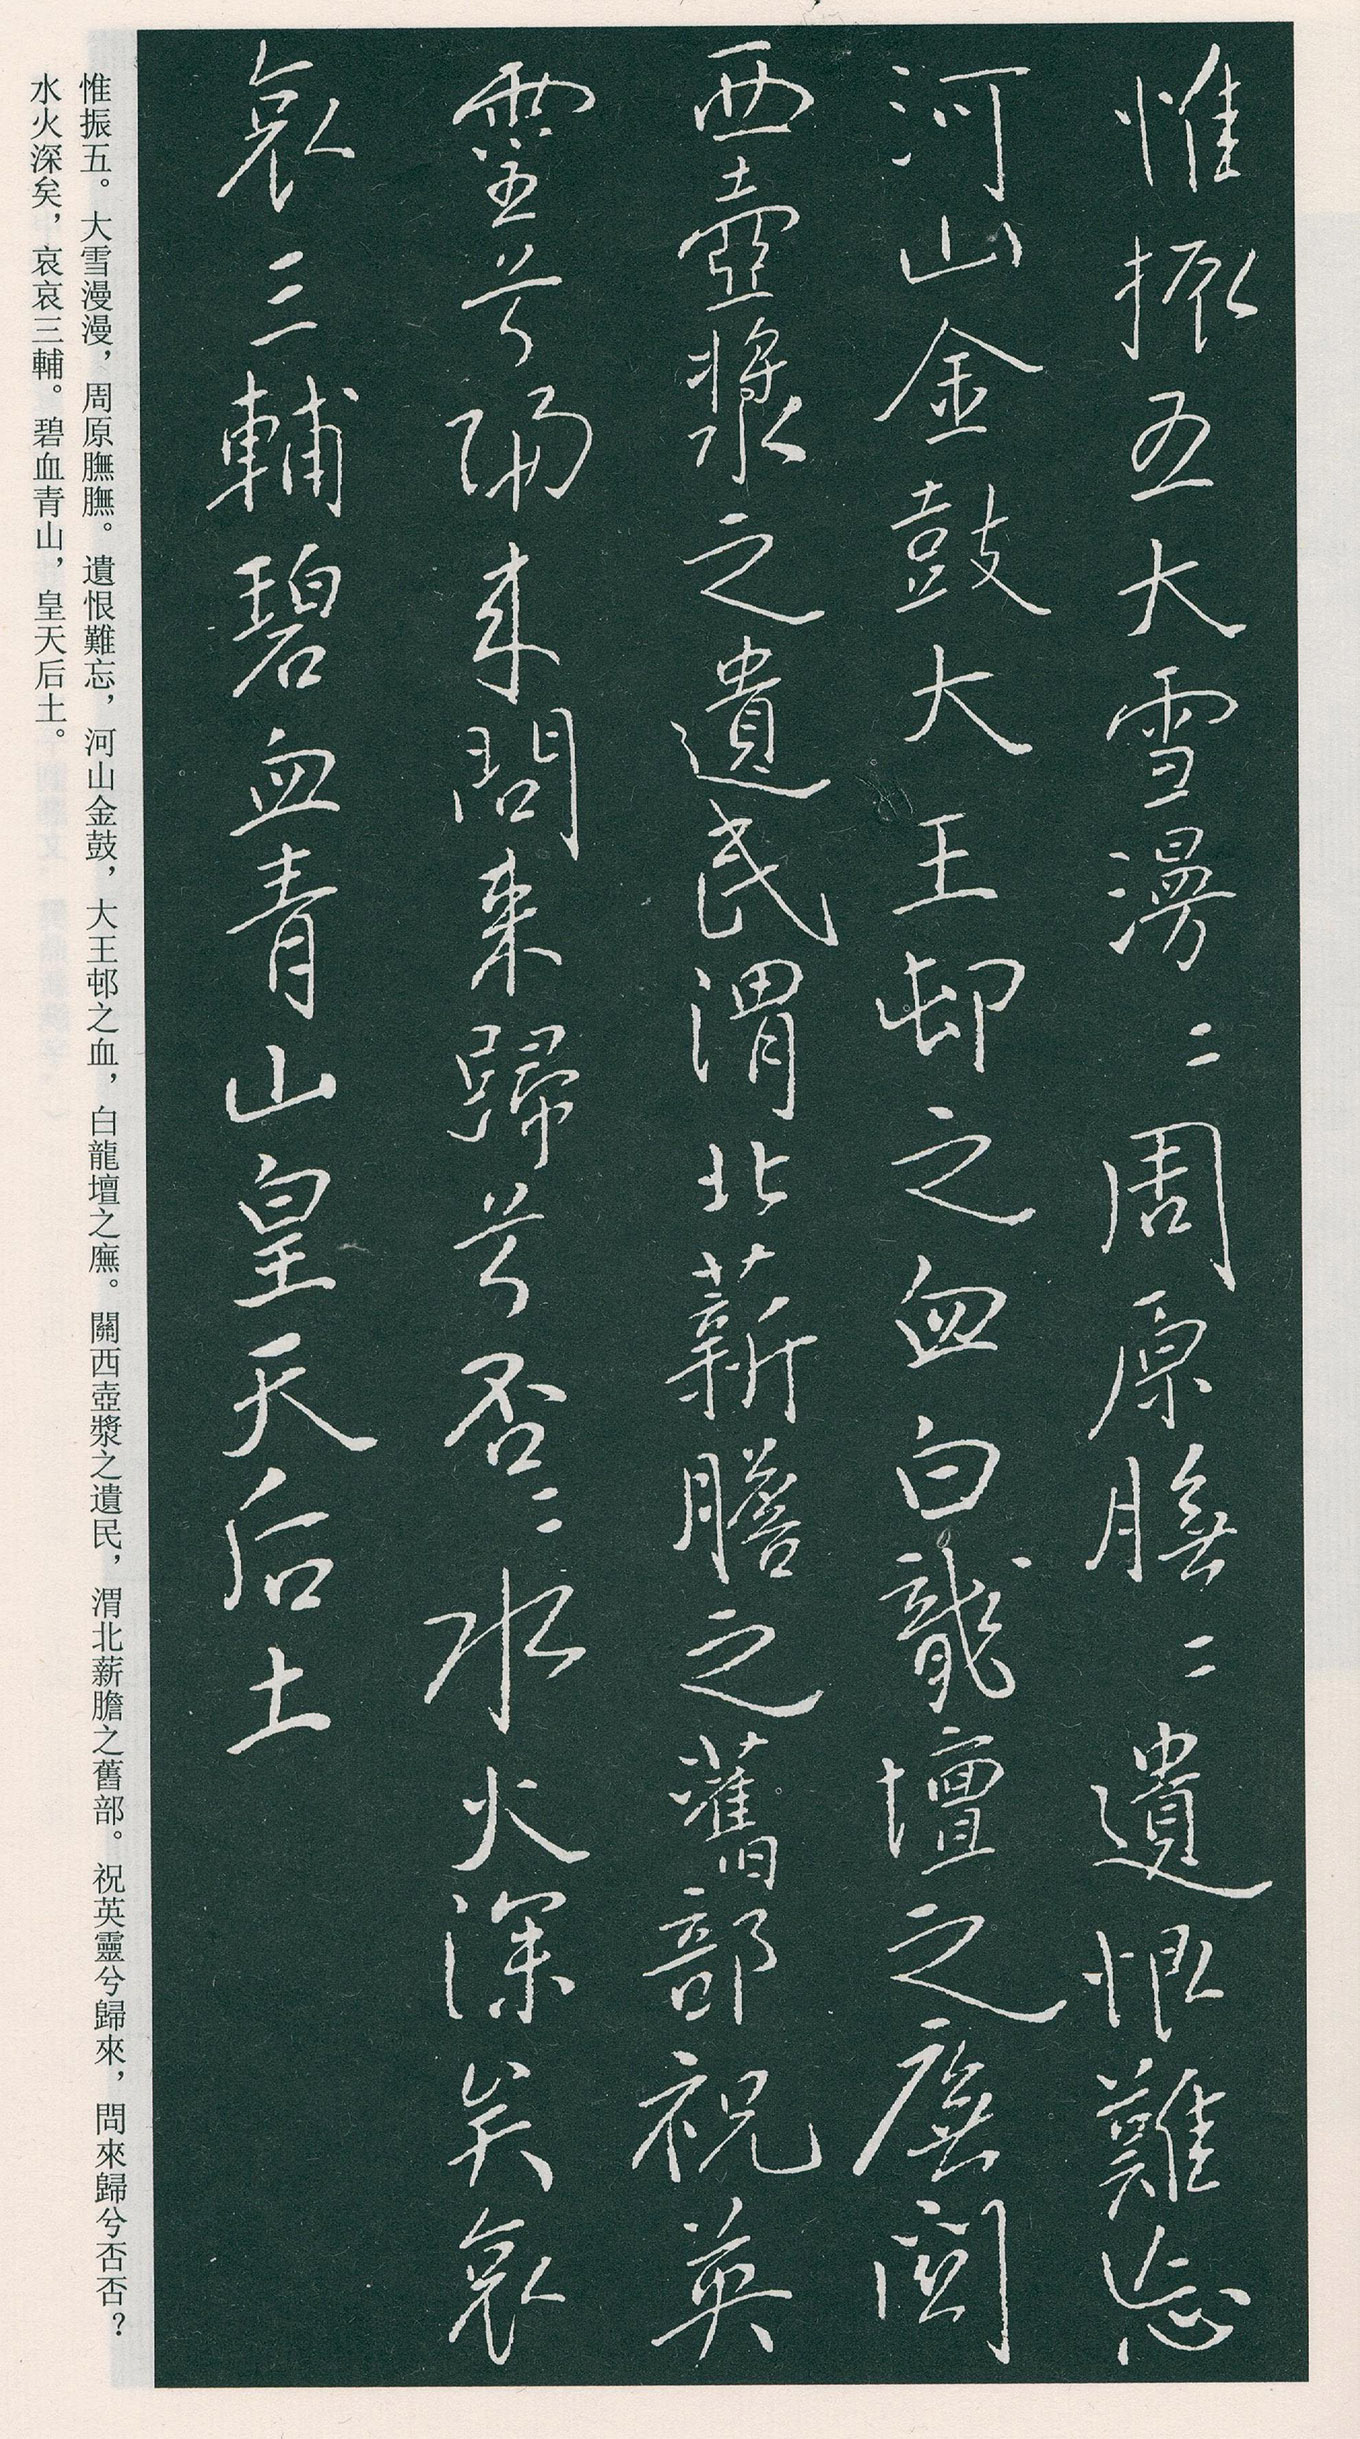 惟振五大雪漫〻周原膴〻遺恨難忘
河山金鼓大王邨之血白龍壇之廡關
西壺漿之遺民渭北薪膽之舊部祝英
靈兮歸來問來歸兮否〻水火深矣哀
哀三輔碧血青山皇天后土
惟振五。大雪漫漫，周原膴膴。遺恨難忘，河山金鼓，大王邨之血，白龍壇之廡。關西壺漿之遺民，渭北薪膽之舊部。祝英靈兮歸來，問來歸兮否否？
水火深矣，哀哀三輔。碧血青山，皇天后土。